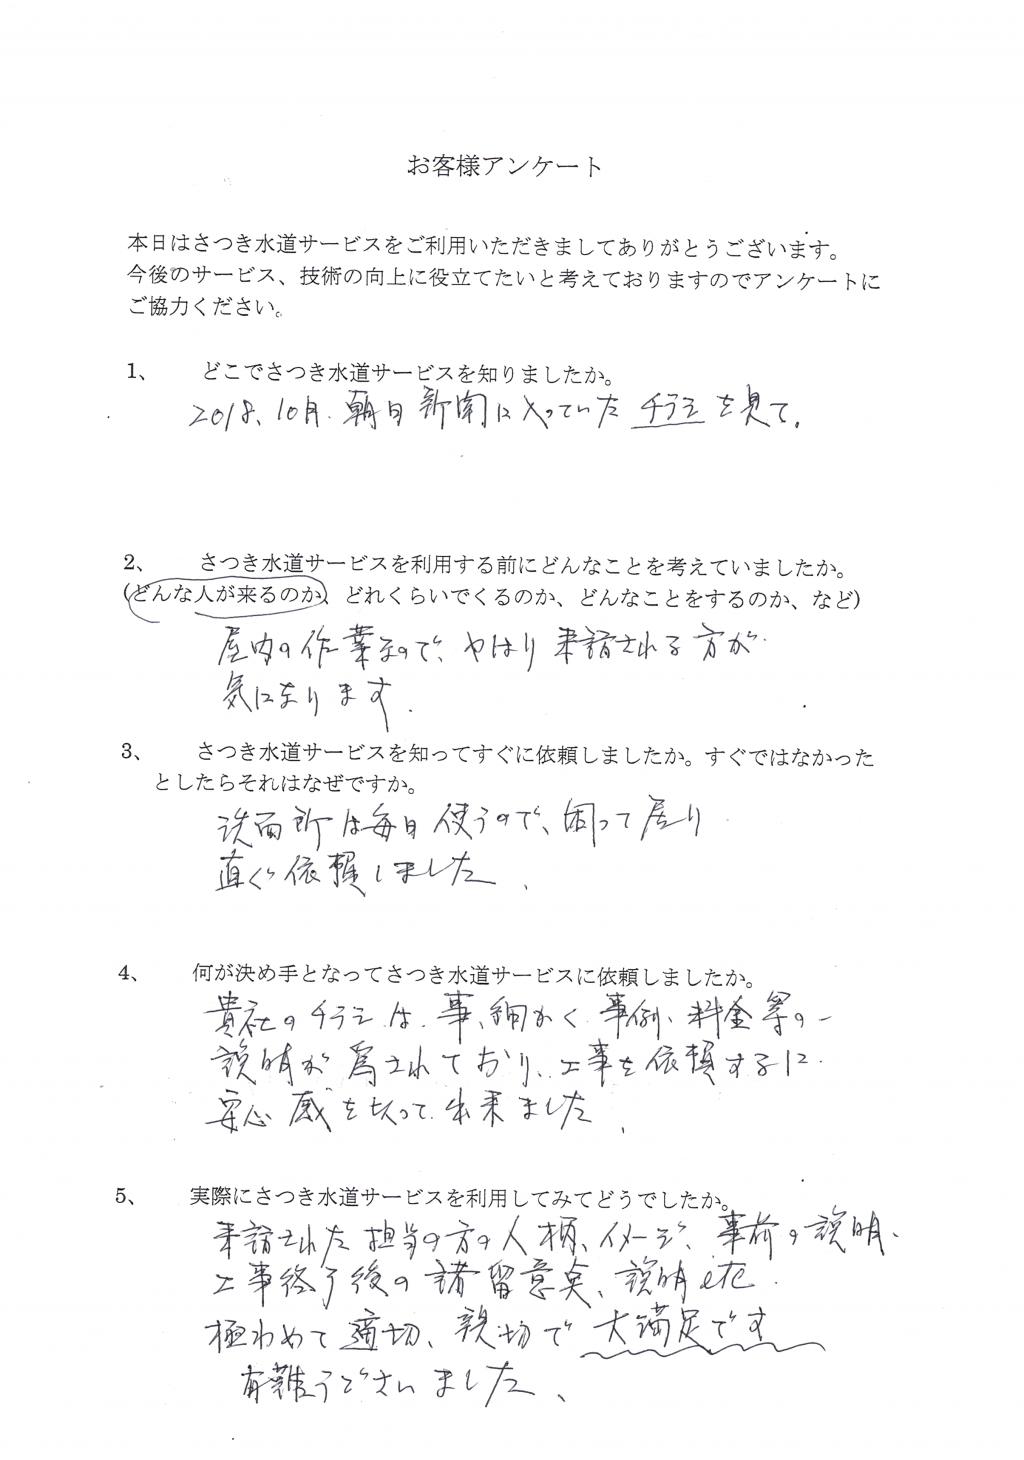 お客様アンケート
本日はさつき水道サービスをご利用いただきましてありがとうございます。
今後のサービス、技術の向上に役立てたいと考えておりますのでアンケートに
ご協力ください。
1、 どこでさつき水道サービスを知りましたか。
2018、10月、朝日新聞に入っていたチラシを見て。
2、 さつき水道サービスを利用する前にどんなことを考えていましたか。
(どんな人が来るのか、どれくらいでくるのか、どんなことをするのか、など)
屋内の作業なので、やはり来訪される方が
気になります。
3、 さつき水道サービスを知ってすぐに依頼しましたか。すぐではなかった
としたらそれはなぜですか。
洗面所は毎日使うので、困って居り
直ぐ依頼しました。
4、 何が決め手となってさつき水道サービスに依頼しましたか。
貴社のチラシは、事細かく事例、料金等の
説明が為されており、工事を依頼するに
安心感を持って出来ました。
5、 実際にさつき水道サービスを利用してみてどうでしたか。
来訪された担当の方の人柄、イメージ、事前の説明、
工事終了後の諸留意点、説明etc
極わめて適切、親切で大満足です
有難うございました。